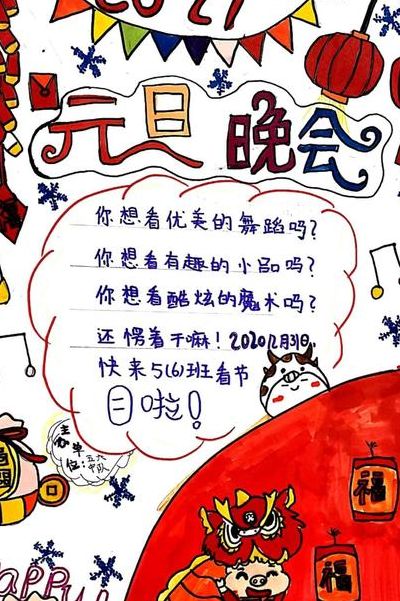 2021
元旦晚会
你想看优美的舞蹈吗?
你想看有趣的小品吗?
你想看酷炫的魔术吗?
还愣着干嘛!202012月31日.
快来5(6)班看节
目啦!
主办单
位:五六
中队
福
福
HAPPY